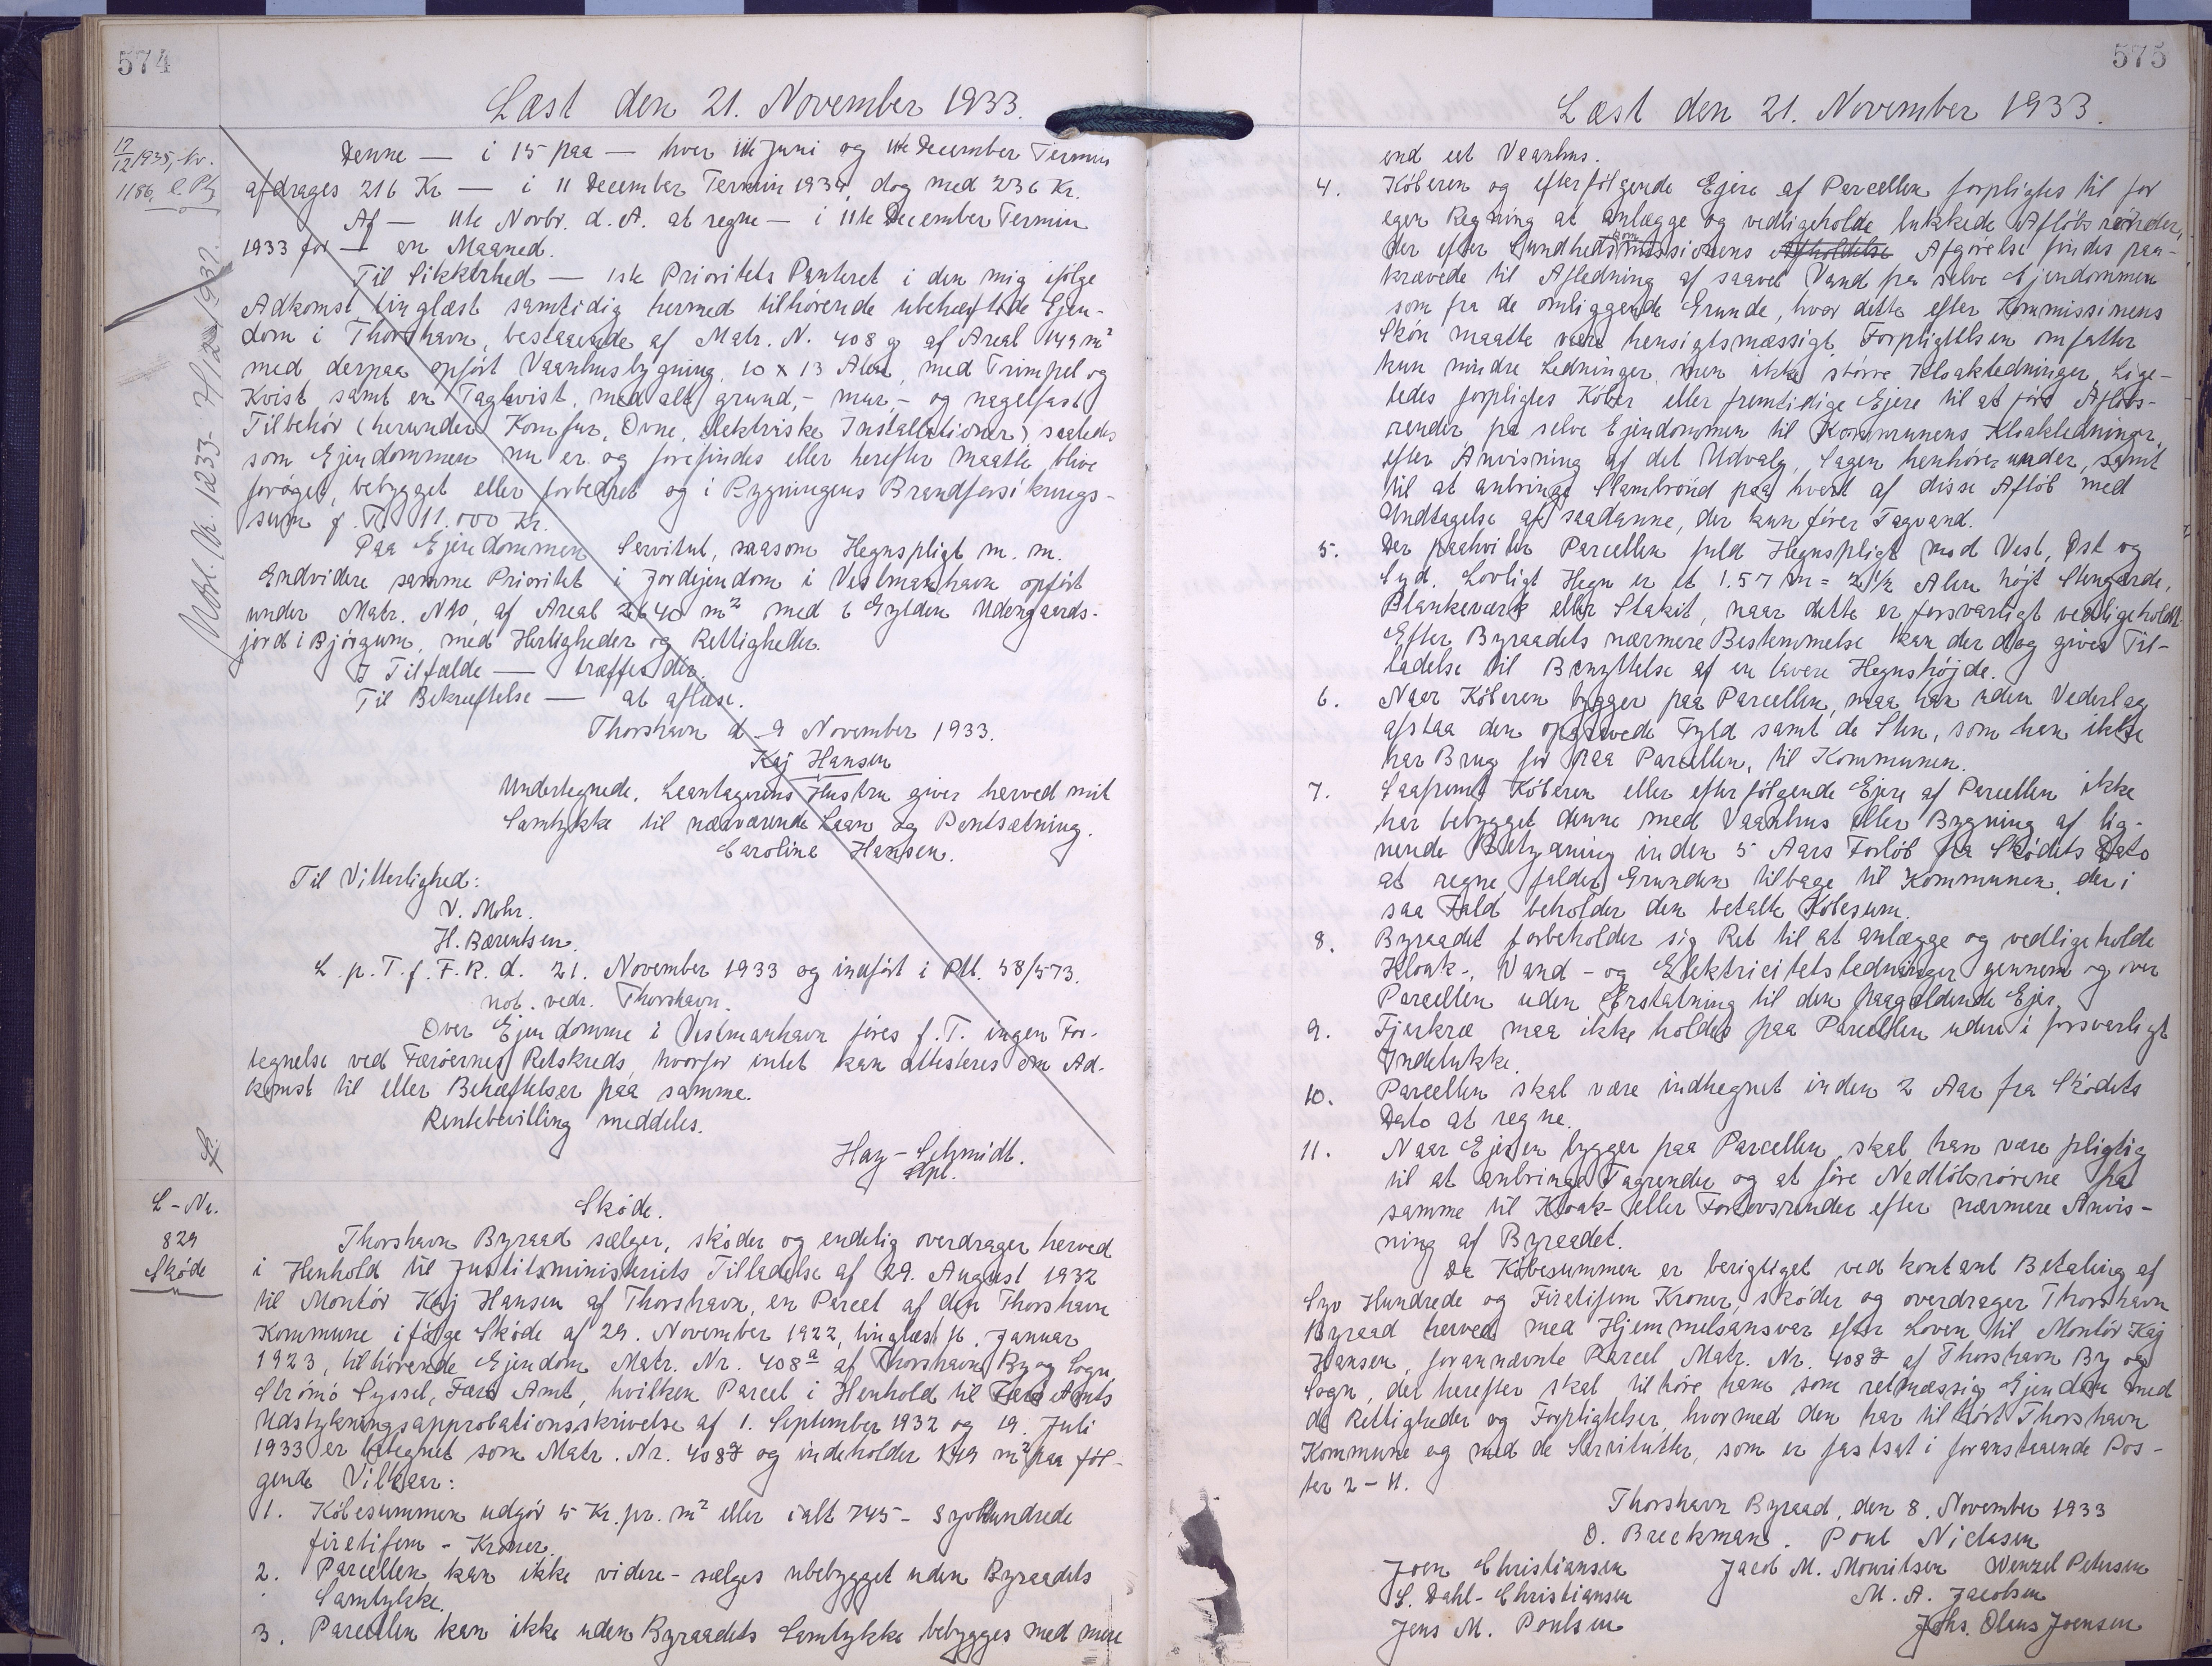 574
Læst den 21. November 1933.
12/12 1935, Nr.
1186,
Denne — i 15 paa — hver 11te Juni og 11te December Termin
afdrages 216 Kr — i 11 December Termin 1934 dog med 236 Kr.
Af — 11te Novbr. d. A. at regne — i 11te December Termin
1933 for — en Maaned.
Til Sikkerhed — 1ste Prioritets Panteret i den mig ifølge
Adkomst tinglæst samtidig hermed tilhørende ubehæftede Ejen-
dom i Thorshavn, bestaaende af Matr. N. 408 g af Areal 149 m²
med derpaa opført Vaanhusbygning, 10 x 13 Alen, med Trimpel og
Kvist samt en Tagkvist, med alt grund,- mur,- og nagelfast
Tilbehör (herunder Komfur, Ovne, elektriske Installationer) saaledes
som Ejendommen nu er og forefindes eller herefter maatte blive
forøget, bebygget eller forbedret og i Bygningens Brandforsikrings-
sum f. T. 11.000 Kr.
Paa Ejendommen Servitut, saasom Hegnspligt m. m.
Endvidere samme Prioritet i Jordejendom i Vestmanhavn opført
under Matr. N 10, af Areal 2640 m² med 6 Gylden Udengaards-
jord i Bjørgum, med Herligheder og Rettigheder.
I Tilfælde — træffes der.
Til Bekræftelse — at aflæse.
Thorshavn d. 9 November 1933.
Kaj Hansen
Undertegnede, Laantagerens Hustru giver herved mit
Samtykke til nærværende Laan og Pantsætning.
Caroline Hansen.
Til Vitterlighed:
V. Mohr.
H. Bærentsen.
L. p. T. f. F. R. d. 21. November 1933 og indført i Ptl. 58/573.
not. vedr. Thorshavn.
Over Ejendomme i Vestmanhavn føres f. T. ingen For-
tegnelse ved Færøernes Retskreds, hvorfor intet kan attesteres om Ad-
komst til eller Behæftelser paa samme.
Rentebevilling meddeles.
Hay-Schmidt.
L-Nr.
829
Skøde
Skøde.
Thorshavn Byraad sælger, skøder og endelig overdrager herved
i Henhold til Justitsministeriets Tilladelse af 29. August 1932
til Montör Kaj Hansen af Thorshavn, en Parcel af den Thorshavn
Kommune ifølge Skøde af 29. November 1922, tinglæst 16. Januar
1923, tilhørende Ejendom Matr. Nr. 408 a af Thorshavn By og Sogn,
Strømø Syssel, Færø Amt, hvilken Parcel i Henhold til Færø Amts
Udstykningsapprobationsskrivelse af 1. September 1932 og 19. Juli
1933 er betegnet som Matr. Nr. 408 g og indeholder 149 m² paa føl-
gende Vilkaar:
1. Købesummen udgør 5 Kr. pr. m² eller ialt 745 - Syvhundrede
firetifem - Kroner.
2. Parcellen kan ikke videre-sælges ubebygget uden Byraadets
Samtykke.
3. Parcellen kan ikke uden Byraadets Samtykke bebygges med mere
575
Læst den 21. November 1933.
end eet Vaanhus.
4. Køberen og efterfølgende Ejere af Parcellen forpligtes til for
egen Regning at anlægge og vedligeholde lukkede Afløbsrender,
der efter Sundhedskommissionens Afholdelse Afgørelse findes paa-
krævede til Afledning af saavel Vand fra selve Ejendommen
som fra de omliggende Grunde, hvor dette efter Kommissionens
Skøn maatte være hensigtsmæssigt. Forpligtelsen omfatter
kun mindre Ledninger, men ikke større Kloakledninger. Lige-
ledes forpligtes Køber eller fremtidige Ejere til at føre Afløbs-
render fra selve Ejendommen til Kommunens Kloakledninger,
efter Anvisning af det Udvalg, Sagen henhører under, samt
til at anbringe Slambrønd paa hvert af disse Afløb med
Undtagelse af saadanne, der kun fører Tagvand.
5. Der paahviler Parcellen fuld Hegnspligt mod Vest, Øst og
Syd. Lovligt Hegn er et 1.57 m = 2 1/2 Alen højt Stengærde,
Plankeværk eller Stakit, naar dette er forsvarligt vedligeholdt.
Efter Byraadets nærmere Bestemmelse kan der dog gives Til-
ladelse til Benyttelse af en lavere Hegnshøjde.
6. Naar Køberen bygger paa Parcellen, maa han uden Vederlag
afstaa den opgravede Fyld samt de Sten, som han ikke
har Brug for paa Parcellen, til Kommunen.
7. Saafremt Køberen eller efterfølgende Ejere af Parcellen ikke
har bebygget denne med Vaanhus eller Bygning af lig-
nende Betydning inden 5 Aars Forløb fra Skødets Dato
at regne, falder Grunden tilbage til Kommunen, der i
saa Fald beholder den betalte Købesum.
8. Byraadet forbeholder sig Ret til at anlægge og vedligeholde
Kloak-, Vand- og Elektricitetsledninger gennem og over
Parcellen uden Erstatning til den paagældende Ejer.
9. Fjerkræ maa ikke holdes paa Parcellen uden i forsvarligt
Indelukke.
10. Parcellen skal være indhegnet inden 2 Aar fra Skødets
Dato at regne.
11. Naar Ejeren bygger paa Parcellen, skal han være pligtig
til at anbringe Tagrender og at føre Nedløbsrørene fra
samme til Kloak- eller Fortovsrender efter nærmere Anvis-
ning af Byraadet.
Da Købesummen er berigtiget ved kontant Betaling af
Syv Hundrede og Firetifem Kroner, skøder og overdrager Thorshavn
Byraad herved med Hjemmelsansvar efter Loven til Montör Kaj
Hansen, forannævnte Parcel Matr. Nr. 408 g af Thorshavn By og
Sogn, der herefter skal tilhøre ham som retmæssig Ejendom med
de Rettigheder og Forpligtelser, hvormed den har tilhørt Thorshavn
Kommune og med de Servitutter, som er fastsat i foranstaaende Pos-
ter 2 - 11.
Thorshavn Byraad, den 8. November 1933
O. Breckmann. Poul Niclasen
Joen Christiansen Jacob M. Mouritsen Wenzel Petersen
S. Dahl-Christiansen M. A. Jacobsen
Jens M. Poulsen Johs. Olaus Joensen